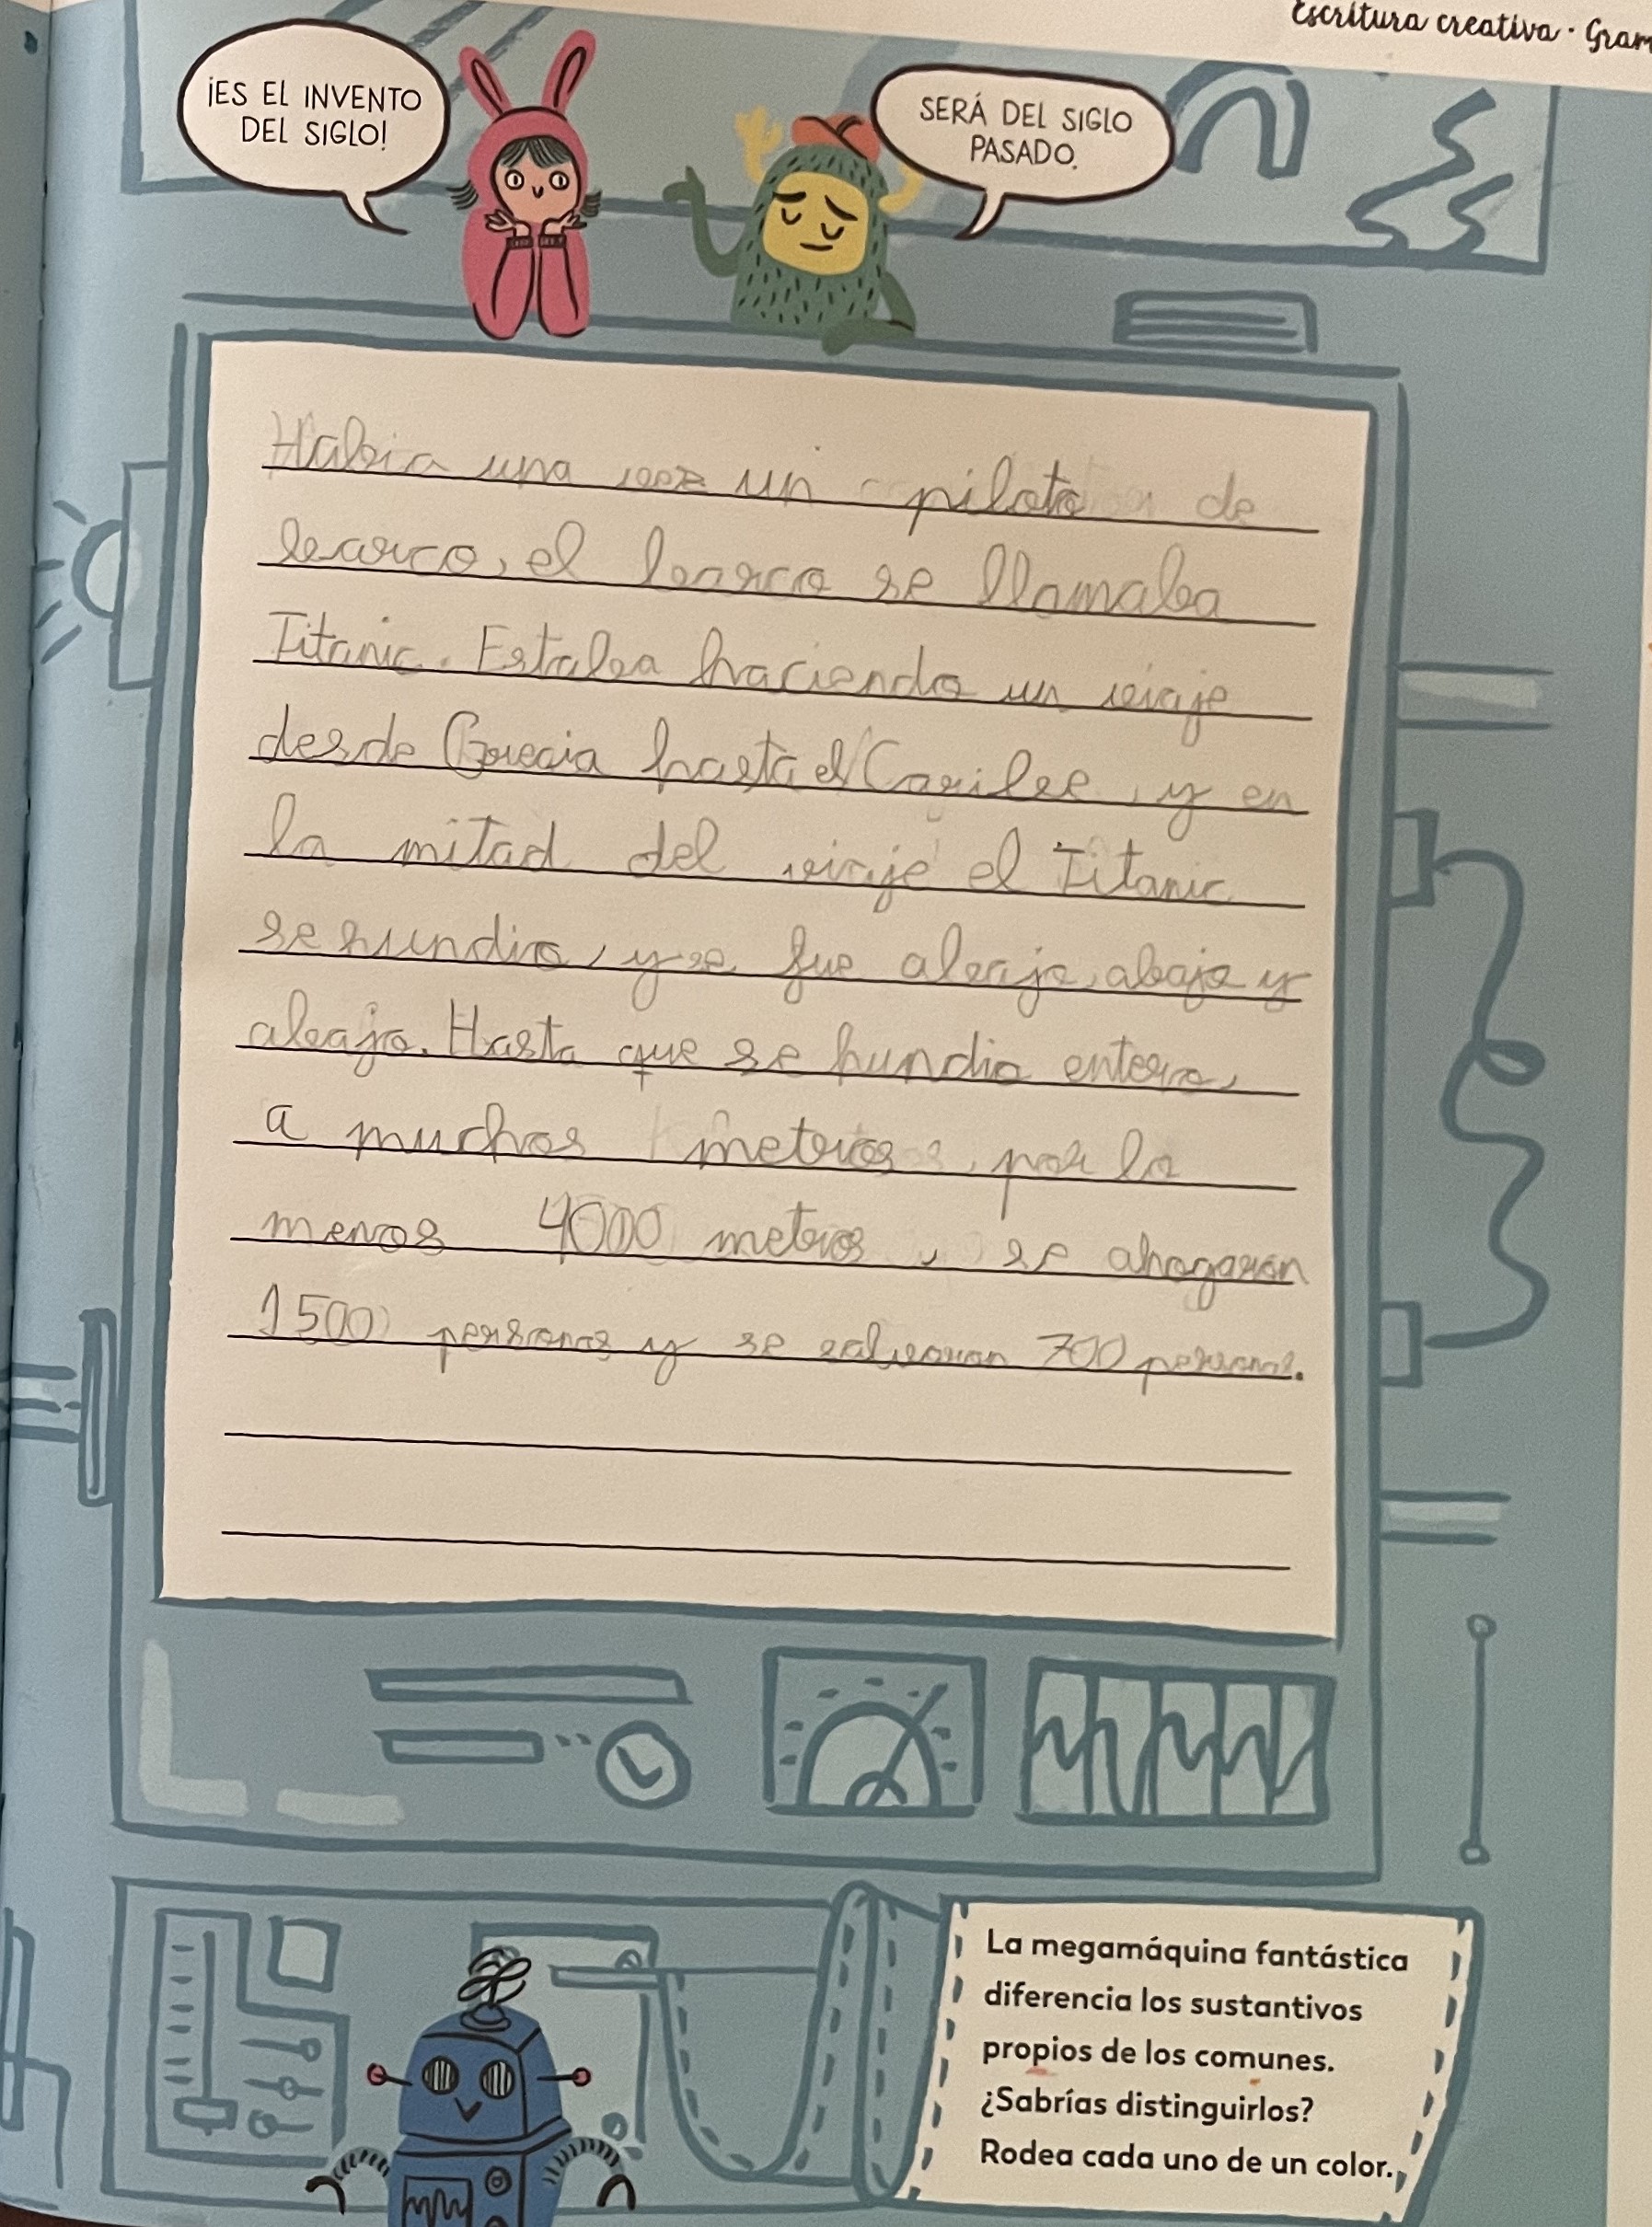 Escritura creativa · Gram
¡ES EL INVENTO
DEL SIGLO!
SERÁ DEL SIGLO
PASADO.
Habia una vez un piloto de
barco, el barco se llamaba
Titanic. Estaba haciendo un viaje
desde Grecia hasta el Caribe, y en
la mitad del viaje el Titanic
se hundio, y se fue abajo, abajo y
abajo. Hasta que se hundio entero,
a muchos metros, por lo
menos 4000 metros, se ahogaron
1500 personas y se salvaron 700 personas.
La megamáquina fantástica
diferencia los sustantivos
propios de los comunes.
¿Sabrías distinguirlos?
Rodea cada uno de un color.